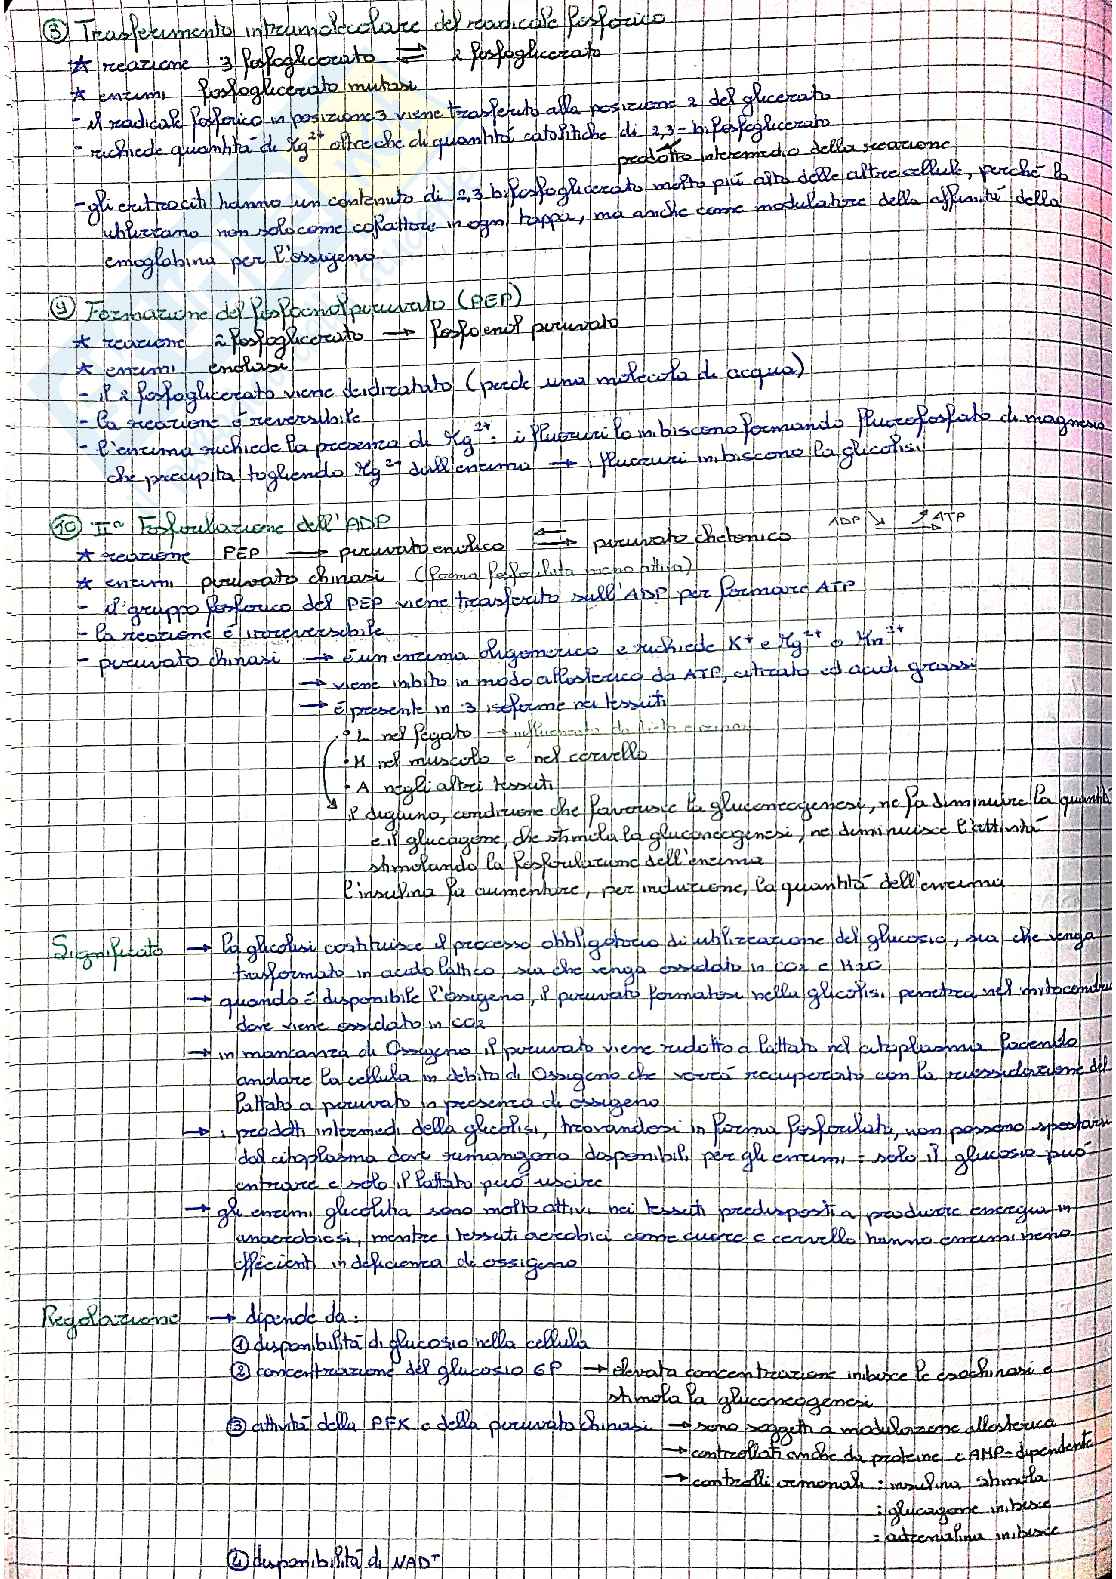 ⑧ Trasferimento intramolecolare del radicale fosforico
★ reazione 3 fosfoglicerato ⇌ 2 fosfoglicerato
★ enzimi fosfoglicerato mutasi
- il radicale fosforico in posizione 3 viene trasferito alla posizione 2 del glicerato
- richiede quantità di Mg²⁺ oltre che di quantità catalitiche di 2,3-bifosfoglicerato
prodotto intermedio della reazione
- gli eritrociti hanno un contenuto di 2,3 bifosfoglicerato molto più alto delle altre cellule, perché lo
utilizzano non solo come cofattore in ogni tappa, ma anche come modulatore della affinità della
emoglobina per l'ossigeno
⑨ Formazione del fosfoenolpiruvato (PEP)
★ reazione 2 fosfoglicerato → fosfoenol piruvato
★ enzimi enolasi
- il 2 fosfoglicerato viene deidratato (perde una molecola di acqua)
- la reazione è reversibile
- l'enzima richiede la presenza di Mg²⁺: i fluoruri lo inibiscono formando fluorofosfato di magnesio
che precipita togliendo Mg²⁺ dall'enzima → i fluoruri inibiscono la glicolisi
⑩ IIª Fosforilazione dell'ADP
ADP ↘ ↗ ATP
★ reazione PEP → piruvato enolico ⇌ piruvato chetonico
★ enzimi piruvato chinasi (forma fosforilata meno attiva)
- il gruppo fosforico del PEP viene trasferito sull'ADP per formare ATP
- la reazione è irreversibile
- piruvato chinasi → è un enzima oligomerico e richiede K⁺ e Mg²⁺ o Mn²⁺
→ viene inibito in modo allosterico da ATP, citrato ed acidi grassi
→ è presente in 3 isoforme nei tessuti
• L nel fegato → influenzata da
• M nel muscolo e nel cervello
• A negli altri tessuti
il digiuno, condizione che favorisce la gluconeogenesi, ne fa diminuire la quantità
e il glucagone, che stimola la gluconeogenesi, ne diminuisce l'attività
stimolando la fosforilazione dell'enzima
l'insulina fa aumentare, per induzione, la quantità dell'enzima
Significato → la glicolisi costituisce il processo obbligatorio di utilizzazione del glucosio, sia che venga
trasformato in acido lattico, sia che venga ossidato in CO2 e H2O
→ quando è disponibile l'ossigeno, il piruvato formatosi nella glicolisi penetra nel mitocondrio
dove viene ossidato in CO2
→ in mancanza di Ossigeno il piruvato viene ridotto a lattato nel citoplasma facendo
andare la cellula in debito di Ossigeno che verrà recuperato con la riossidazione del
lattato a piruvato in presenza di ossigeno
→ i prodotti intermedi della glicolisi, trovandosi in forma fosforilata, non possono spostarsi
dal citoplasma dove rimangono disponibili per gli enzimi: solo il glucosio può
entrare e solo il lattato può uscire
→ gli enzimi glicolitici sono molto attivi nei tessuti predisposti a produrre energia in
anaerobiosi, mentre i tessuti aerobici come cuore e cervello hanno enzimi meno
efficienti in deficienza di ossigeno
Regolazione → dipende da:
① disponibilità di glucosio nella cellula
② concentrazione del glucosio 6P → elevata concentrazione inibisce le esochinasi e
stimola la gluconeogenesi
③ attività della PFK e della piruvato chinasi → sono soggetti a modulazione allosterica
→ controllati anche da proteine cAMP-dipendente
→ controlli ormonali: insulina stimola
: glucagone inibisce
: adrenalina inibisce
④ disponibilità di NAD⁺